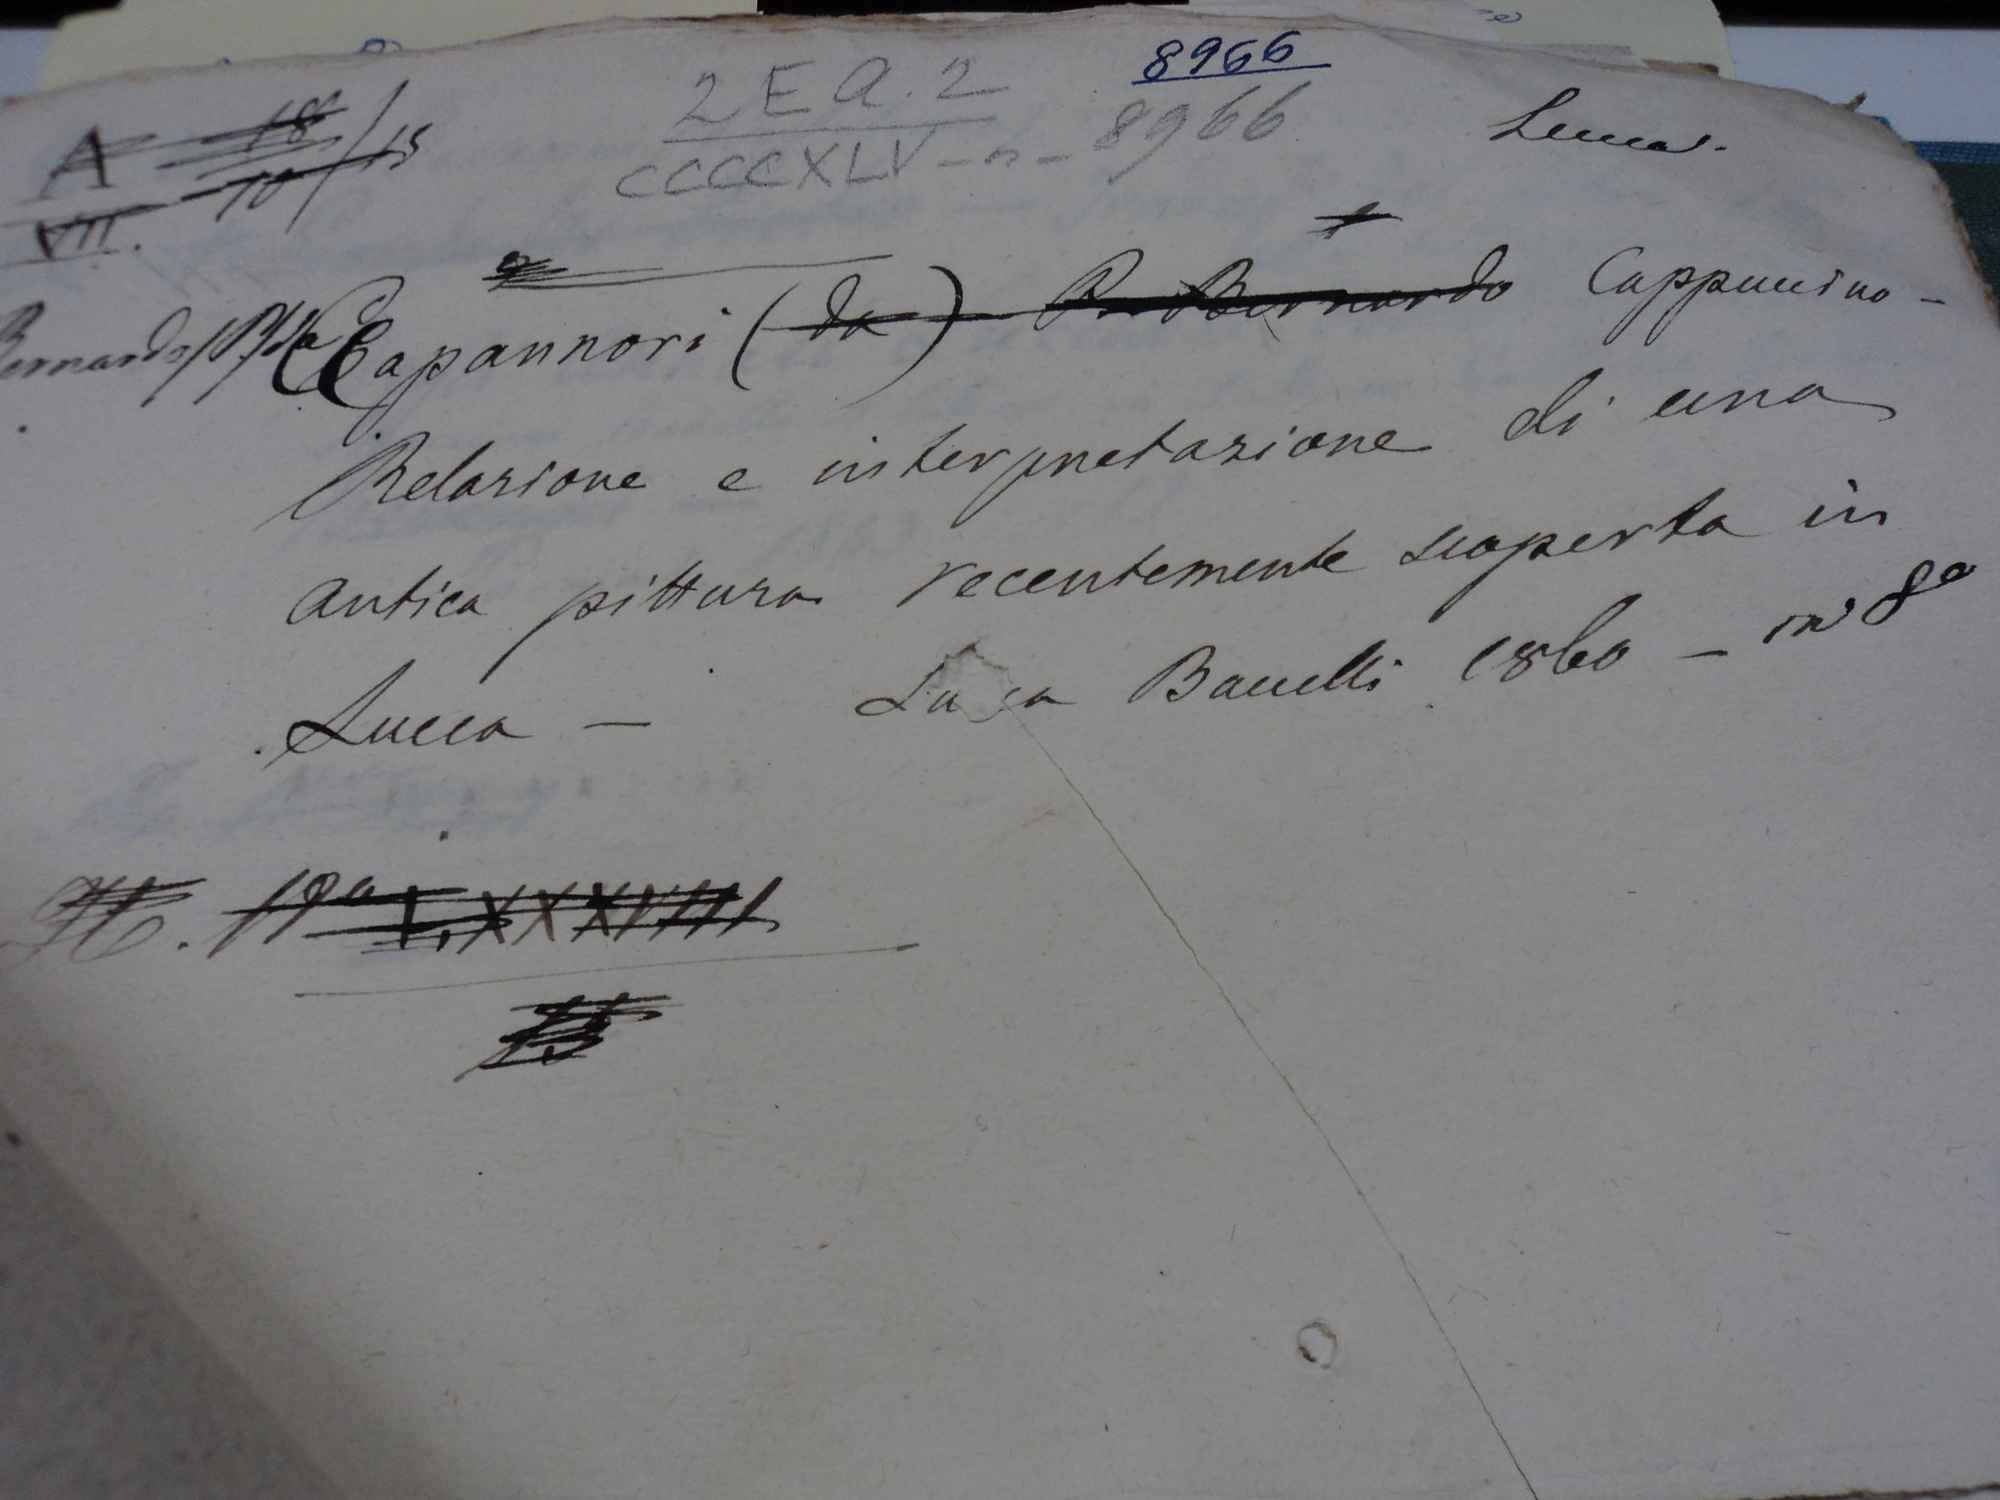 8966
2 E A. 2
CCCCXLV - n - 8966
Lucca.
A 18 / 15
VII. 10
Bernardo (P.) da Capannori (da) P. Bernardo Cappuccino -
Relazione e interpretazione di una
antica pittura recentemente scoperta in
Lucca - Lucca Baccelli 1860 - in 8º
19a L, XXXVIII